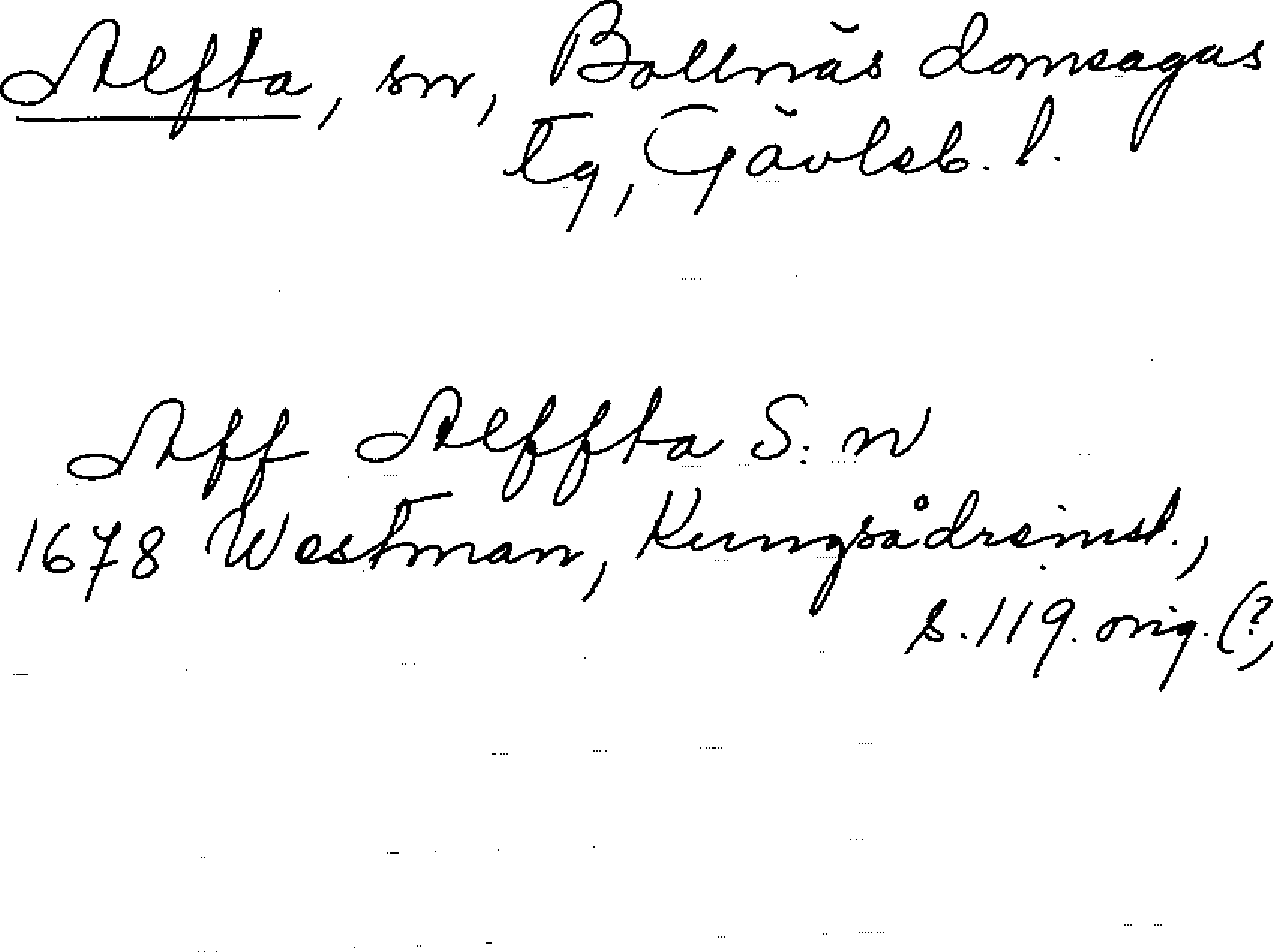 Alfta, sn, Bollnäs domsagas
tg, Gävleb. l.
Aff Alffta S: n
1678 Westman, Kungsådreinst.,
s. 119. orig. (?)